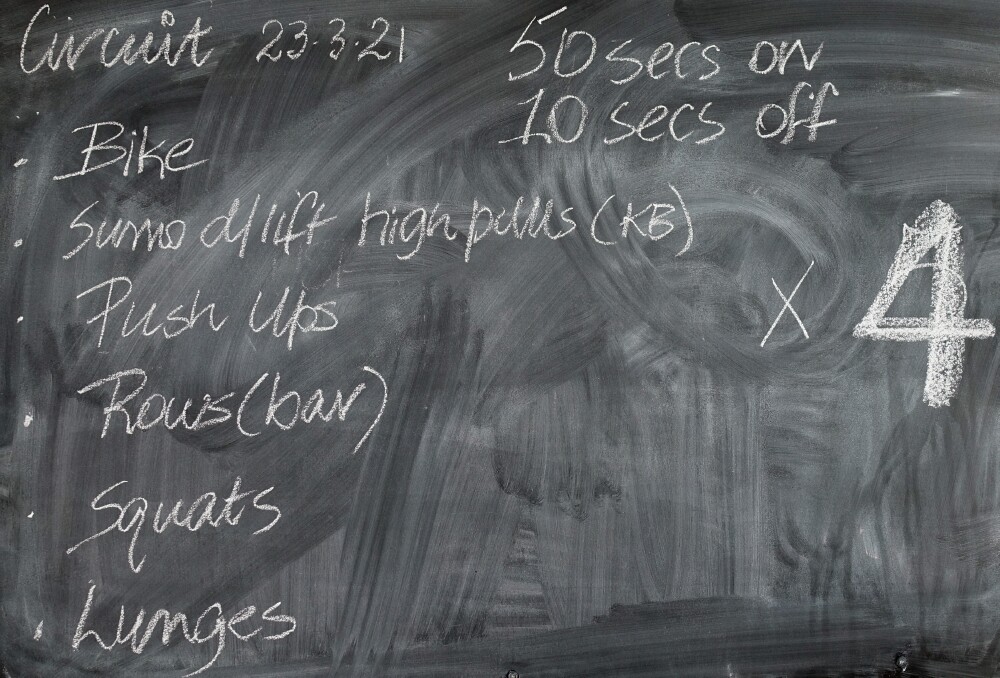 Circuit 23.3.21
50 secs on
10 secs off
. Bike
. Sumo d/lift high pulls (KB)
. Push Ups
. Rows (bar)
. Squats
. Lunges
X 4